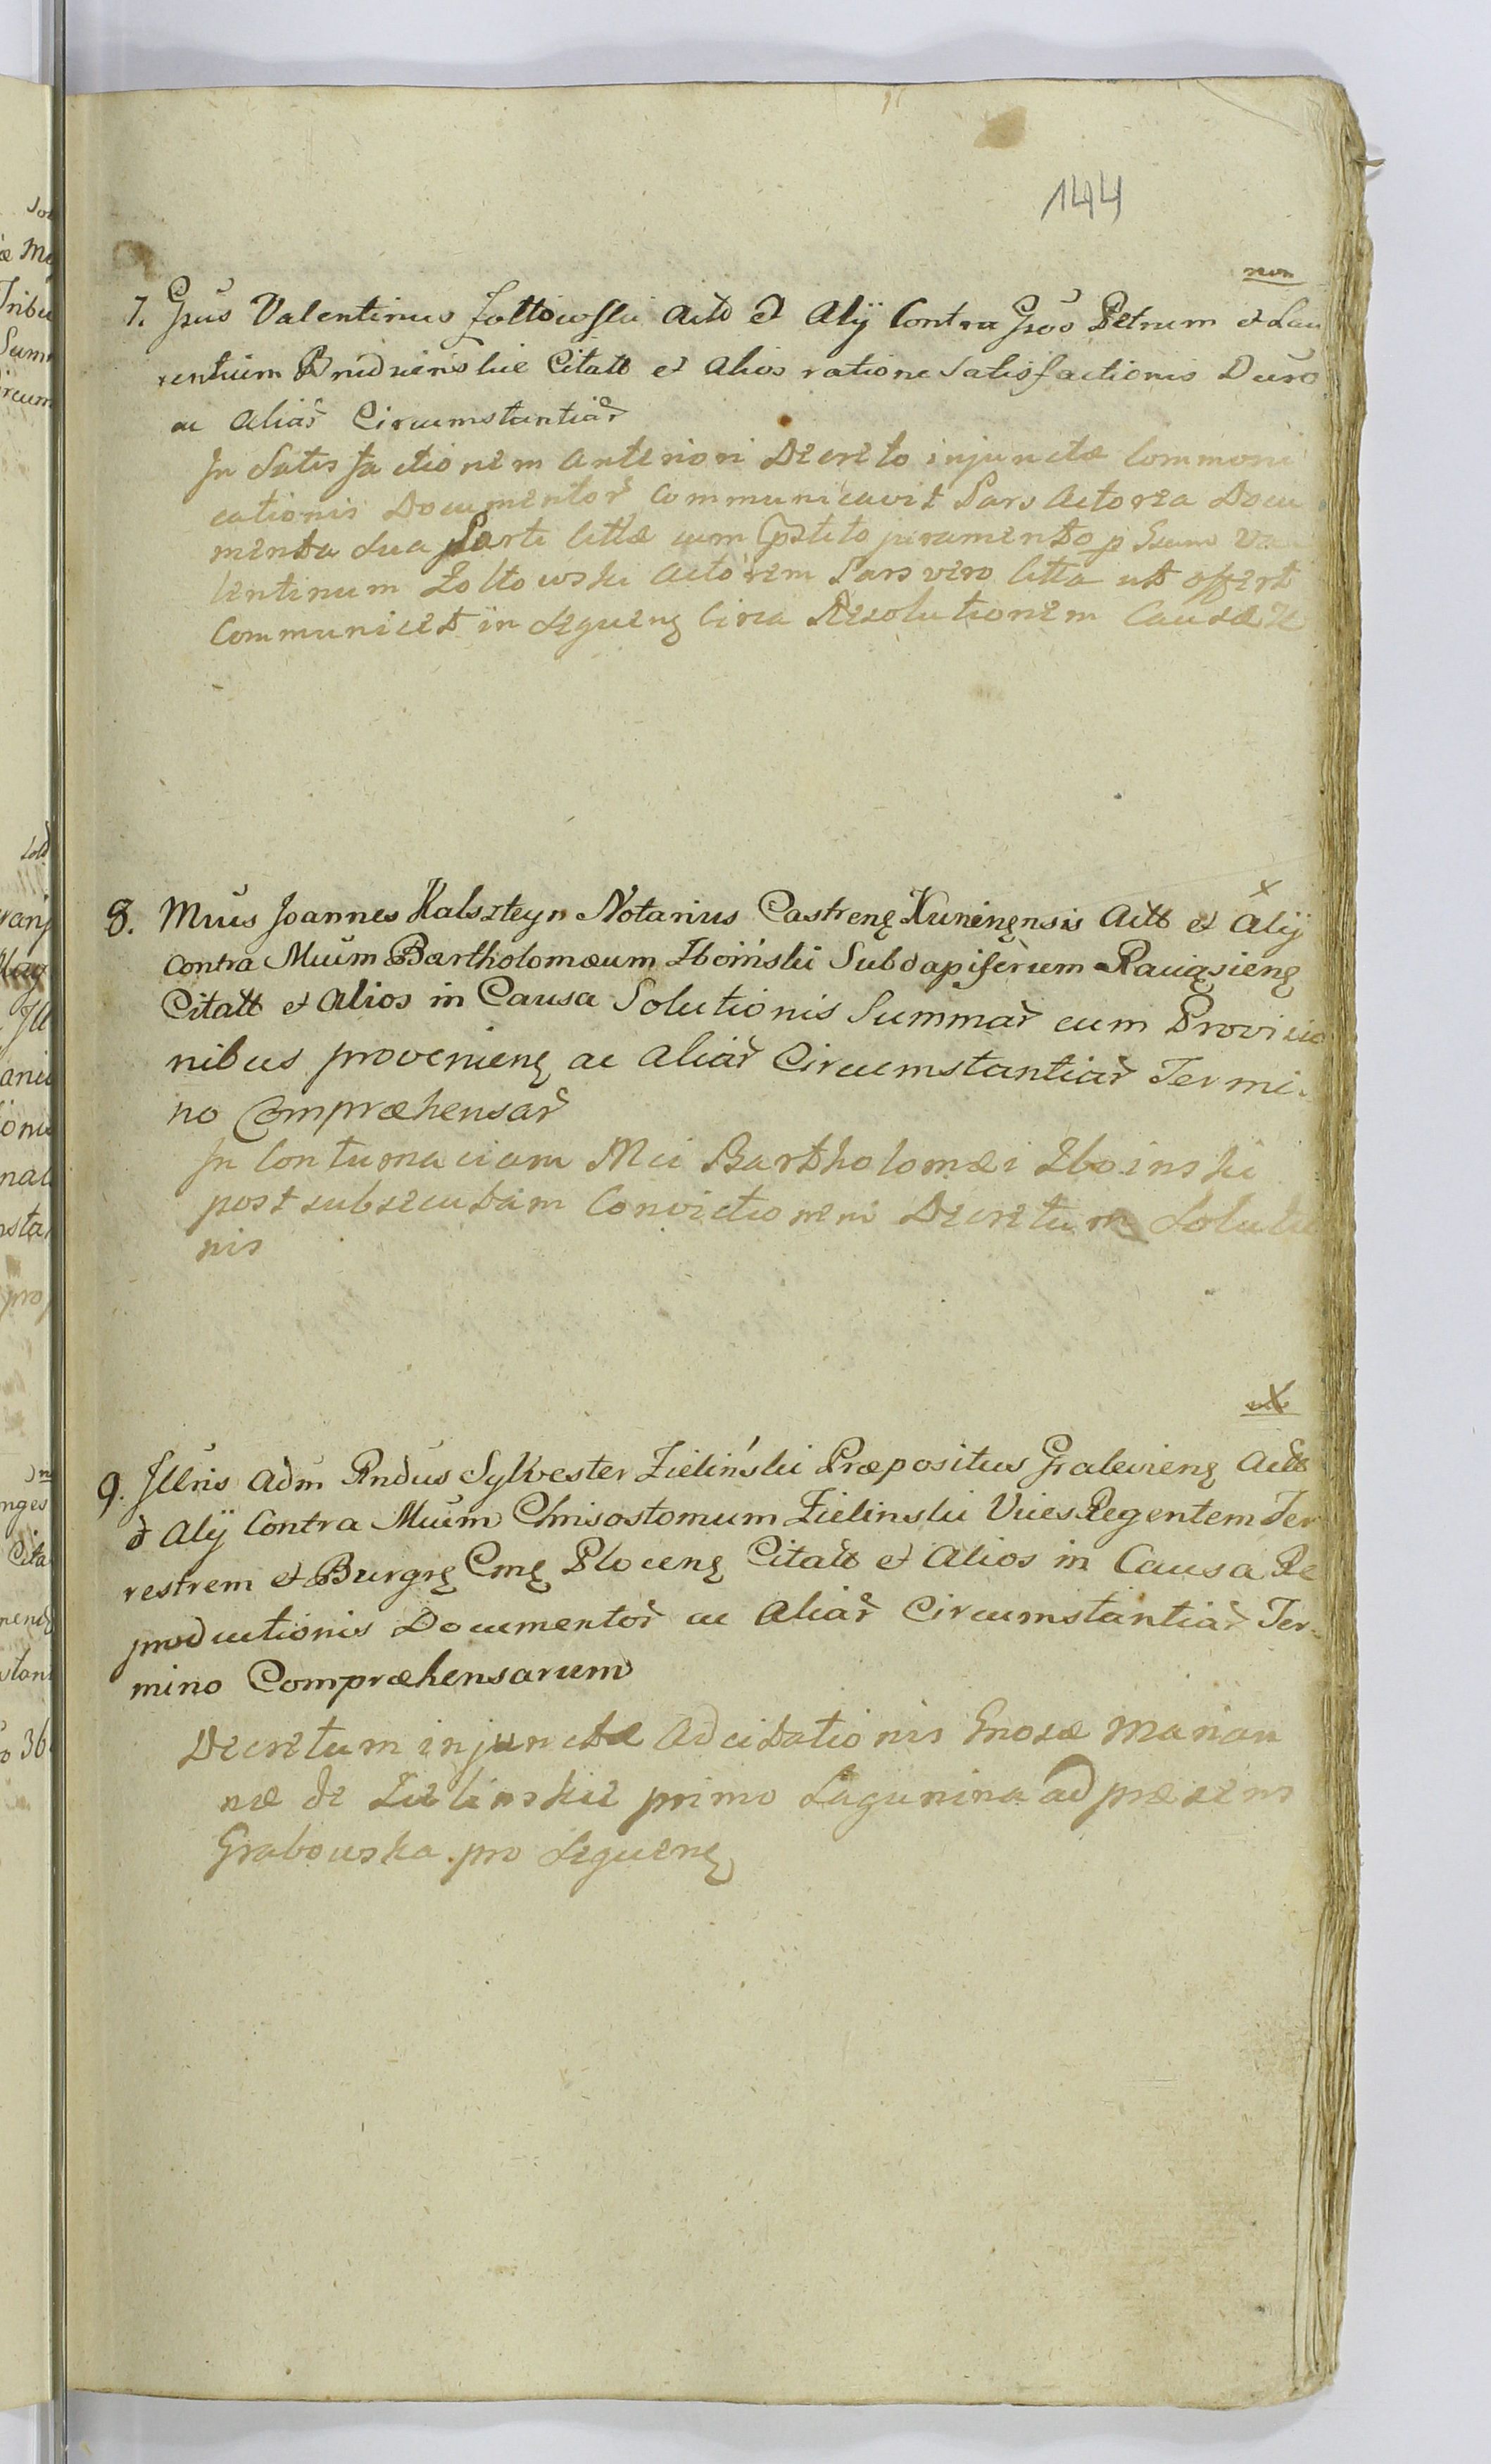 144
non
7. Gsus Valentinus Żołtowski Actt et Alÿ Contra Gsos Petrum et Lau
rentium Brudzienskie Citatt et Alios ratione Satisfactionis Duro
ac Aliar Circumstantiar
In Satisfactionem Anteriori Decreto injunctæ Commoni
cationis Documentor communicavit Pars Actorea Docu
menta sua Parti Cittæ cum Pstito juramento p Gsum Va
lentinum Zoltowski Actorem Pars vero Citta utt offert
Communicet in Sequenę Circa Resolutionem Causæ
8. Mcus Joannes Halszteyn Notarius Castrenę Xuninęnsis Actt et Alÿ
x
contra Mcum Bartholomæum Zboiński Subdapiferum Raciążienę
Citatt et Alios in Causa Solutionis Summar cum Provisio
nibus provenienę ac Aliar Circumstantiar Termi-
no Compræhensar
In Contumaciam Mci Bartholomæi Zboinski
post subsecutam Convictionem Decretum Solutio
nis
9. Jllris Adm Rndus Sylvester Zieliński Præpositus Gralevienę Actt
et Alÿ Contra Mcum Chrisostomum Zielinski Vices Regentem Ter
restrem et Burgrę Cmę Plocenę Citatt et Alios in Causa Re
productionis Documentor ac Aliar Circumstantiar Ter-
mino Compræhensarum
Decretum injunctæ Adcitationis Gnosæ Marian
næ de Zielinskie primo Lagunina ad præsens
Grabowska pro Sequenę